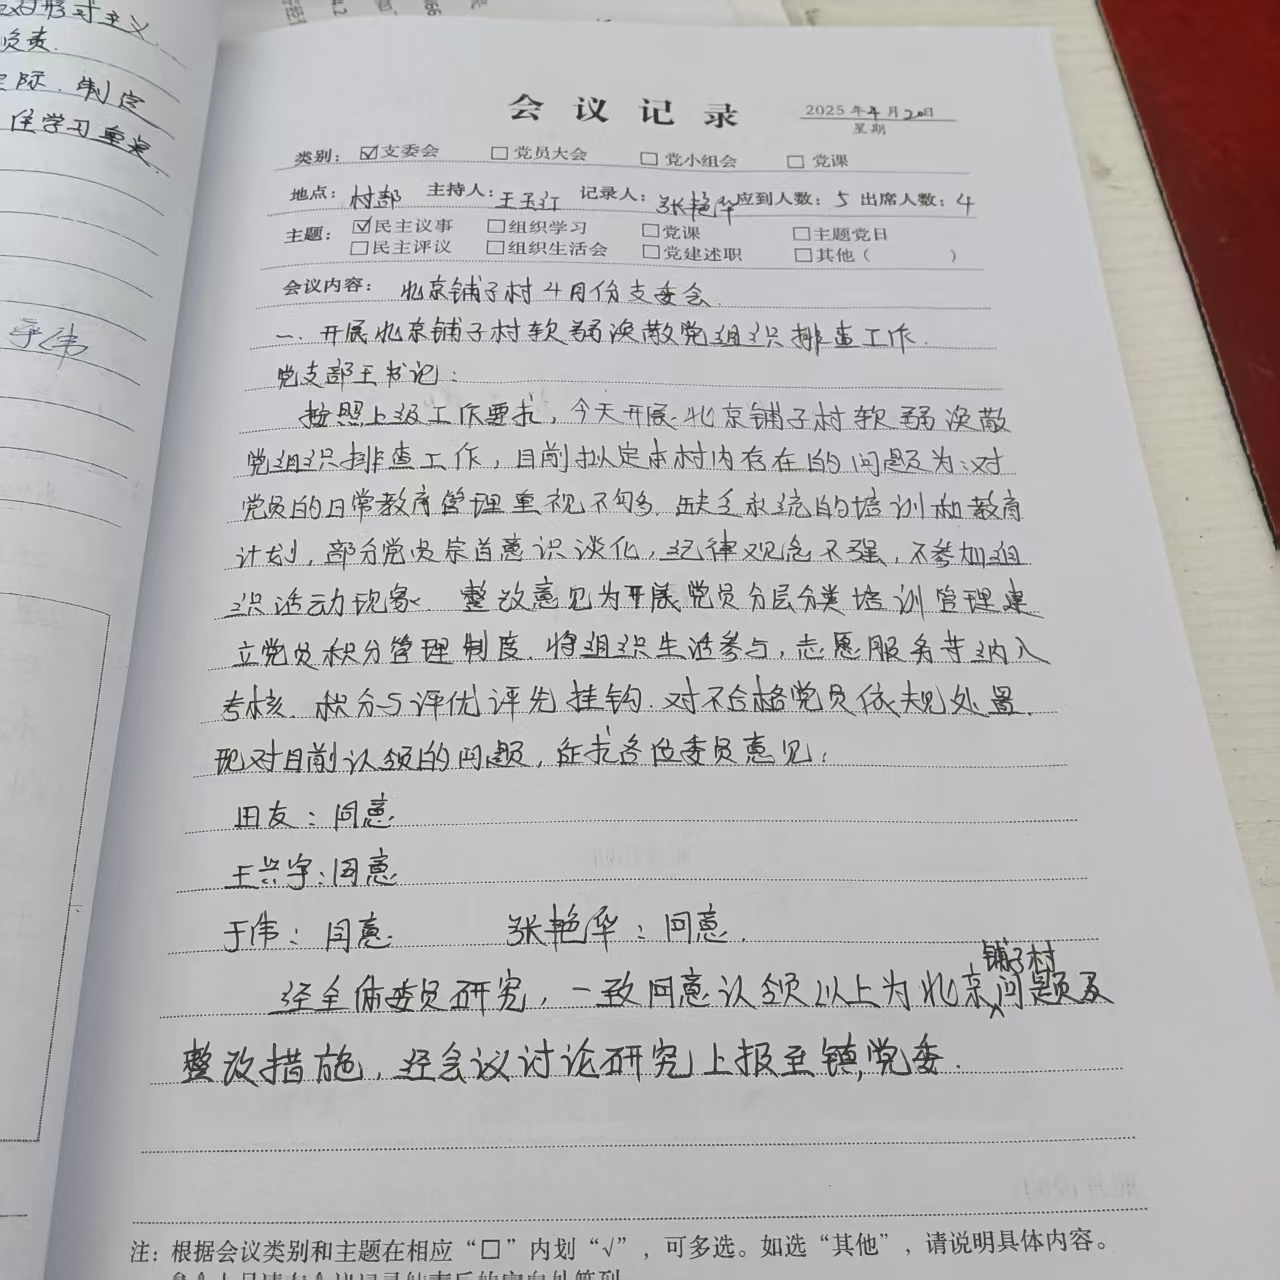 对形式主义
负责.
际.制定
住学习重点
于伟
会议记录
2025年4月20日
星期
类别: ☑支委会 □党员大会 □党小组会 □党课
地点: 村部 主持人:王玉江 记录人:张艳华 应到人数:5 出席人数:4
主题: ☑民主议事 □组织学习 □党课 □主题党日
□民主评议 □组织生活会 □党建述职 □其他( )
会议内容: 北京铺子村4月份支委会.
一.开展北京铺子村软弱涣散党组织排查工作.
党支部王书记:
按照上级工作要求,今天开展北京铺子村软弱涣散
党组织排查工作,目前拟定本村内存在的问题为:对
党员的日常教育管理重视不够,缺乏系统的培训和教育
计划,部分党员宗旨意识淡化,纪律观念不强,不参加组
织活动现象. 整改意见为开展党员分层分类培训管理建
立党员积分管理制度.将组织生活参与,志愿服务等纳入
考核.积分与评优评先挂钩.对不合格党员依规处置.
现对目前认领的问题,征求各位委员意见:
田友:同意
王兴宇:同意
于伟:同意. 张艳华:同意.
经全体委员研究,一致同意认领以上为北京铺子村问题及
整改措施,经会议讨论研究上报至镇党委.
注:根据会议类别和主题在相应“□”内划“√”,可多选。如选“其他”,请说明具体内容。